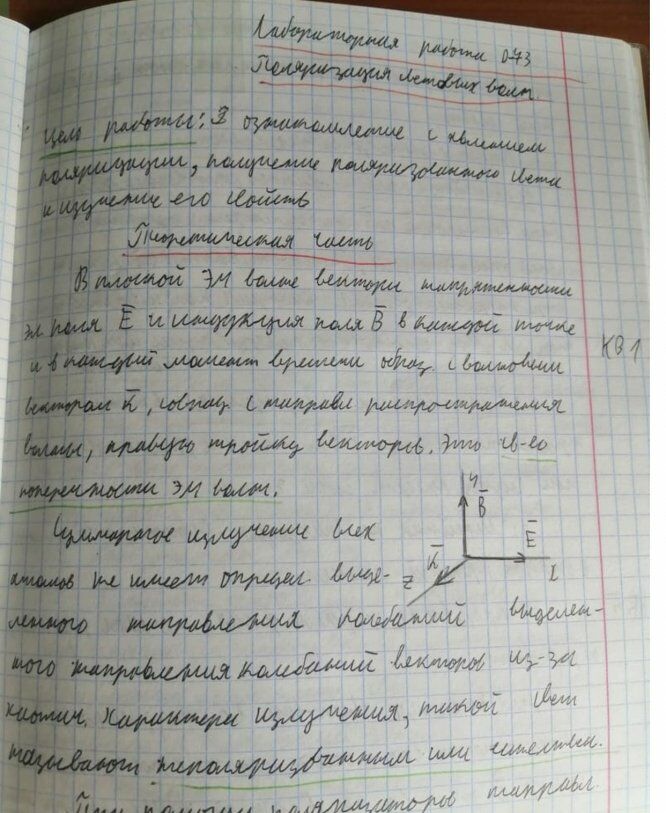 Лабораторная работа 0-73
Поляризация световых волн.
Цель работы: ознакомление с явлением
поляризации, получение поляризованного света
и изучение его свойств
Теоретическая часть
В плоской ЭМ волне векторы напряженности
эл поля E̅ и индукция поля B̅ в каждой точке
и в каждый момент времени образ. с волновым
КВ 1
вектором K̅, совпад. с направл распространения
волны, правую тройку векторов. Это св-во
поперечности ЭМ волн.
Y
B̅
E̅
X
K̅
Z
Суммарное излучение всех
атомов не имеет определ. выде-
ленного направления колебаний выделен-
ного направления колебаний векторов из-за
хаотич. характера излучения, такой свет
называют неполяризованным или естествен.
При помощи поляризаторы направл.